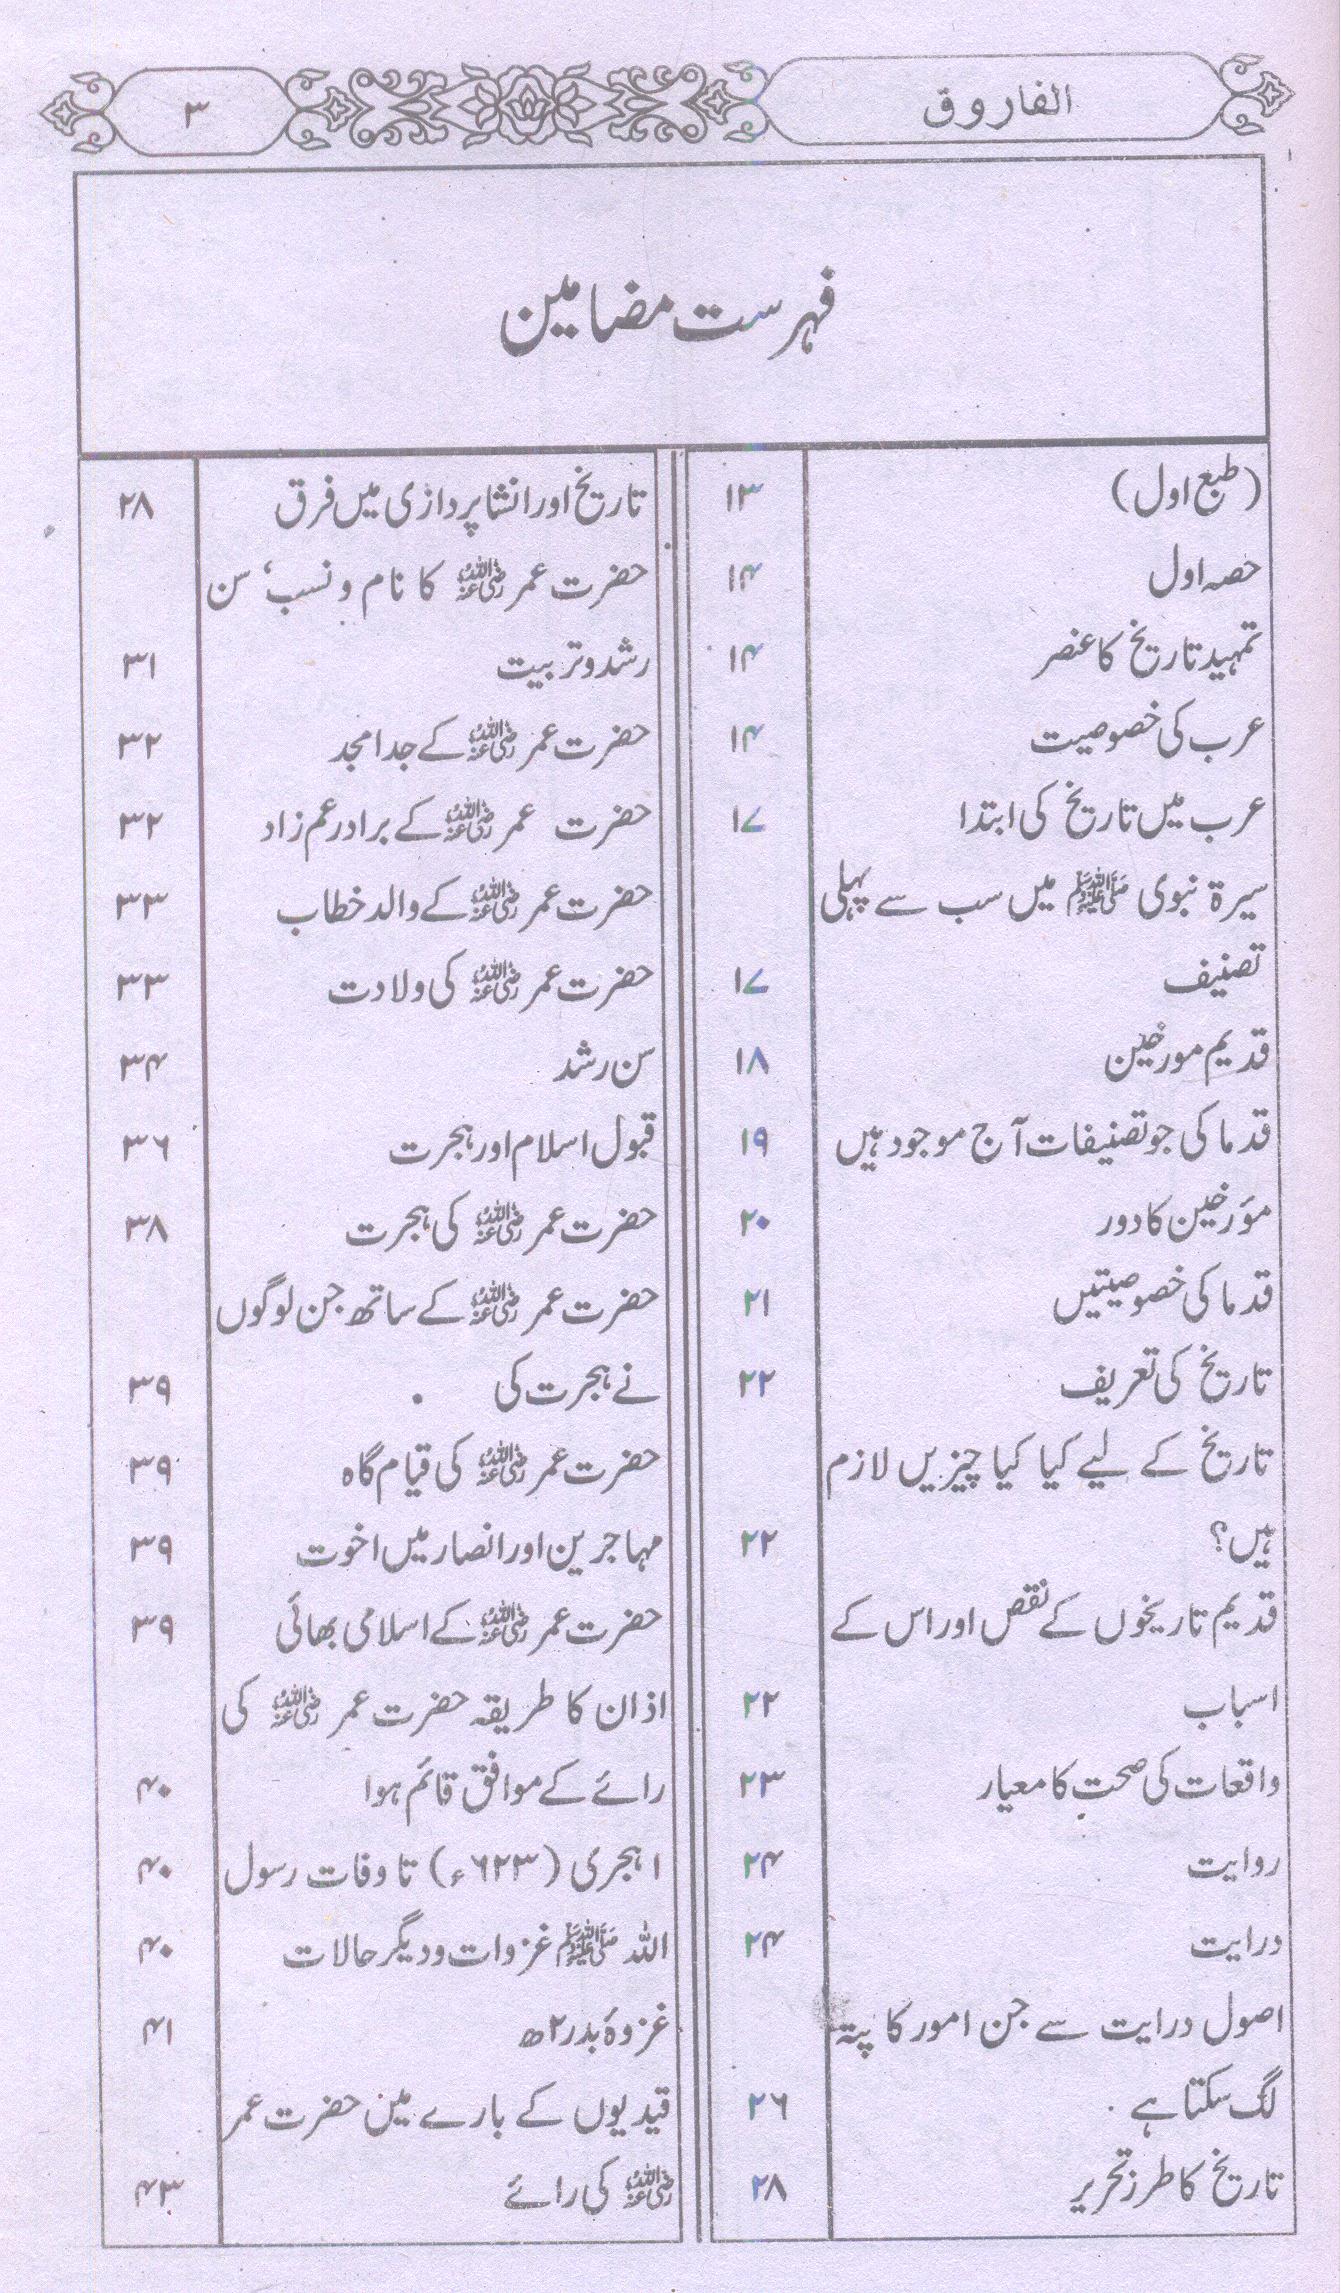 الفاروق ۳
فہرست مضامین
(طبع اول) ۱۳
حصہ اول ۱۴
تمہید تاریخ کا عنصر ۱۴
عرب کی خصوصیت ۱۴
عرب میں تاریخ کی ابتدا ۱۷
سیرۃ نبوی ﷺ میں سب سے پہلی
تصنیف ۱۷
قدیم مورخین ۱۸
قدما کی جو تصنیفات آج موجود ہیں ۱۹
مؤرخین کا دور ۲۰
قدما کی خصوصیتیں ۲۱
تاریخ کی تعریف ۲۲
تاریخ کے لیے کیا کیا چیزیں لازم
ہیں؟ ۲۲
قدیم تاریخوں کے نقص اور اس کے
اسباب ۲۲
واقعات کی صحت کا معیار ۲۳
روایت ۲۴
درایت ۲۴
اصول درایت سے جن امور کا پتہ
لگ سکتا ہے ۲۶
تاریخ کا طرز تحریر ۲۸
تاریخ اور انشا پردازی میں فرق ۲۸
حضرت عمر رضی اللہ عنہ کا نام و نسب، سن
رشد و تربیت ۳۱
حضرت عمر رضی اللہ عنہ کے جد امجد ۳۲
حضرت عمر رضی اللہ عنہ کے برادر عم زاد ۳۲
حضرت عمر رضی اللہ عنہ کے والد خطاب ۳۳
حضرت عمر رضی اللہ عنہ کی ولادت ۳۳
سن رشد ۳۴
قبول اسلام اور ہجرت ۳۶
حضرت عمر رضی اللہ عنہ کی ہجرت ۳۸
حضرت عمر رضی اللہ عنہ کے ساتھ جن لوگوں
نے ہجرت کی ۳۹
حضرت عمر رضی اللہ عنہ کی قیام گاہ ۳۹
مہاجرین اور انصار میں اخوت ۳۹
حضرت عمر رضی اللہ عنہ کے اسلامی بھائی ۳۹
اذان کا طریقہ حضرت عمر رضی اللہ عنہ کی
رائے کے موافق قائم ہوا ۴۰
۱ ہجری (۶۲۳ء) تا وفات رسول ۴۰
اللہ ﷺ غزوات و دیگر حالات ۴۰
غزوۂ بدر ۲ھ ۴۱
قیدیوں کے بارے میں حضرت عمر
رضی اللہ عنہ کی رائے ۴۳